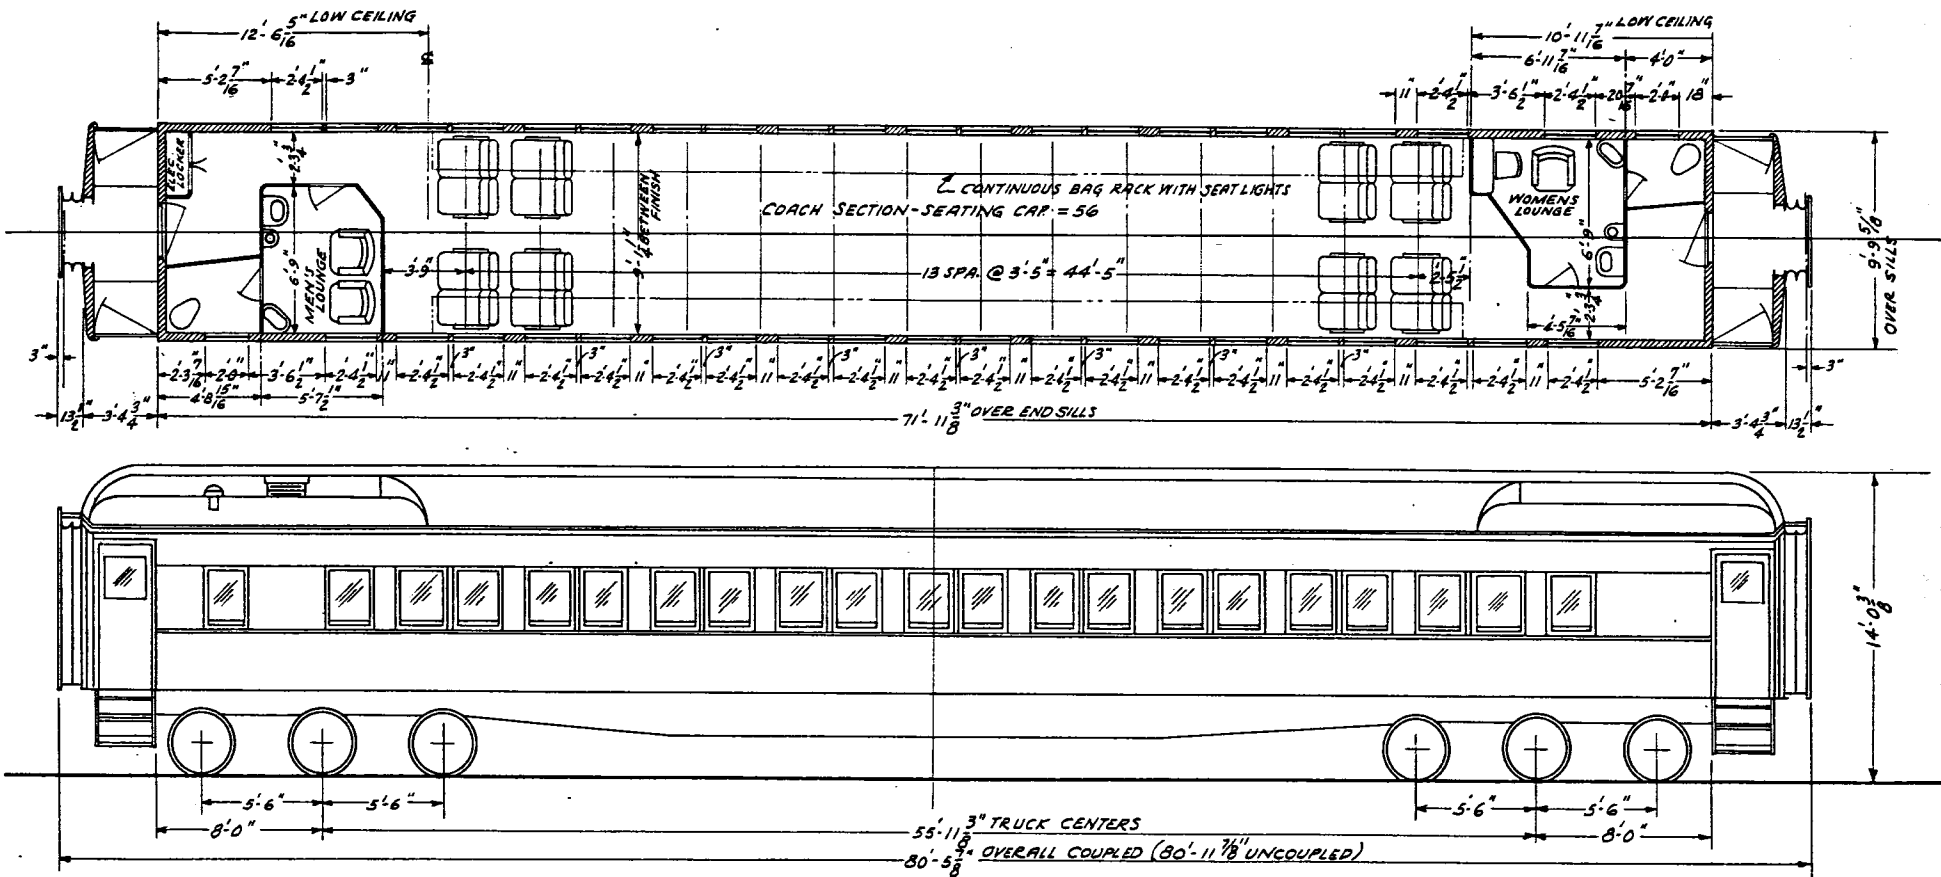 12'-6 5/16" LOW CEILING
5'-2 7/16" 2'-4 1/2" 3"
10'-11 7/16" LOW CEILING
6'-11 7/16" 4'-0"
11" 2'-4 1/2" 3'-6 1/2" 2'-4 1/2" 20 7/16" 2'-0" 18"
ELEC. LOCKER
2'-3 3/4"
6'-9"
MEN'S LOUNGE
3'-9"
9'-1 1/4" BETWEEN FINISH
CONTINUOUS BAG RACK WITH SEAT LIGHTS
COACH SECTION-SEATING CAP. = 56
13 SPA. @ 3'-5" = 44'-5"
2'-5 1/2"
WOMENS LOUNGE
6'-9"
2'-3 3/4"
4'-5 7/16"
9'-9 5/8" OVER SILLS
3" 3" 3" 3" 3" 3" 3" 3" 3"
2'-3 7/16" 2'-0" 3'-6 1/2" 2'-4 1/2" 11" 2'-4 1/2" 2'-4 1/2" 11" 2'-4 1/2" 2'-4 1/2" 11" 2'-4 1/2" 2'-4 1/2" 11" 2'-4 1/2" 2'-4 1/2" 11" 2'-4 1/2" 2'-4 1/2" 11" 2'-4 1/2" 2'-4 1/2" 11" 2'-4 1/2" 2'-4 1/2" 11" 2'-4 1/2" 2'-4 1/2" 11" 2'-4 1/2" 2'-4 1/2" 11" 2'-4 1/2" 5'-2 7/16" 3"
4'-8 15/16" 5'-7 1/2"
13 1/2" 3'-4 3/4" 71'-11 3/8" OVER END SILLS 3'-4 3/4" 13 1/2"
14'-0 3/8"
5'-6" 5'-6" 5'-6" 5'-6"
8'-0" 55'-11 3/8" TRUCK CENTERS 8'-0"
80'-5 7/8" OVERALL COUPLED (80'-11 7/8" UNCOUPLED)